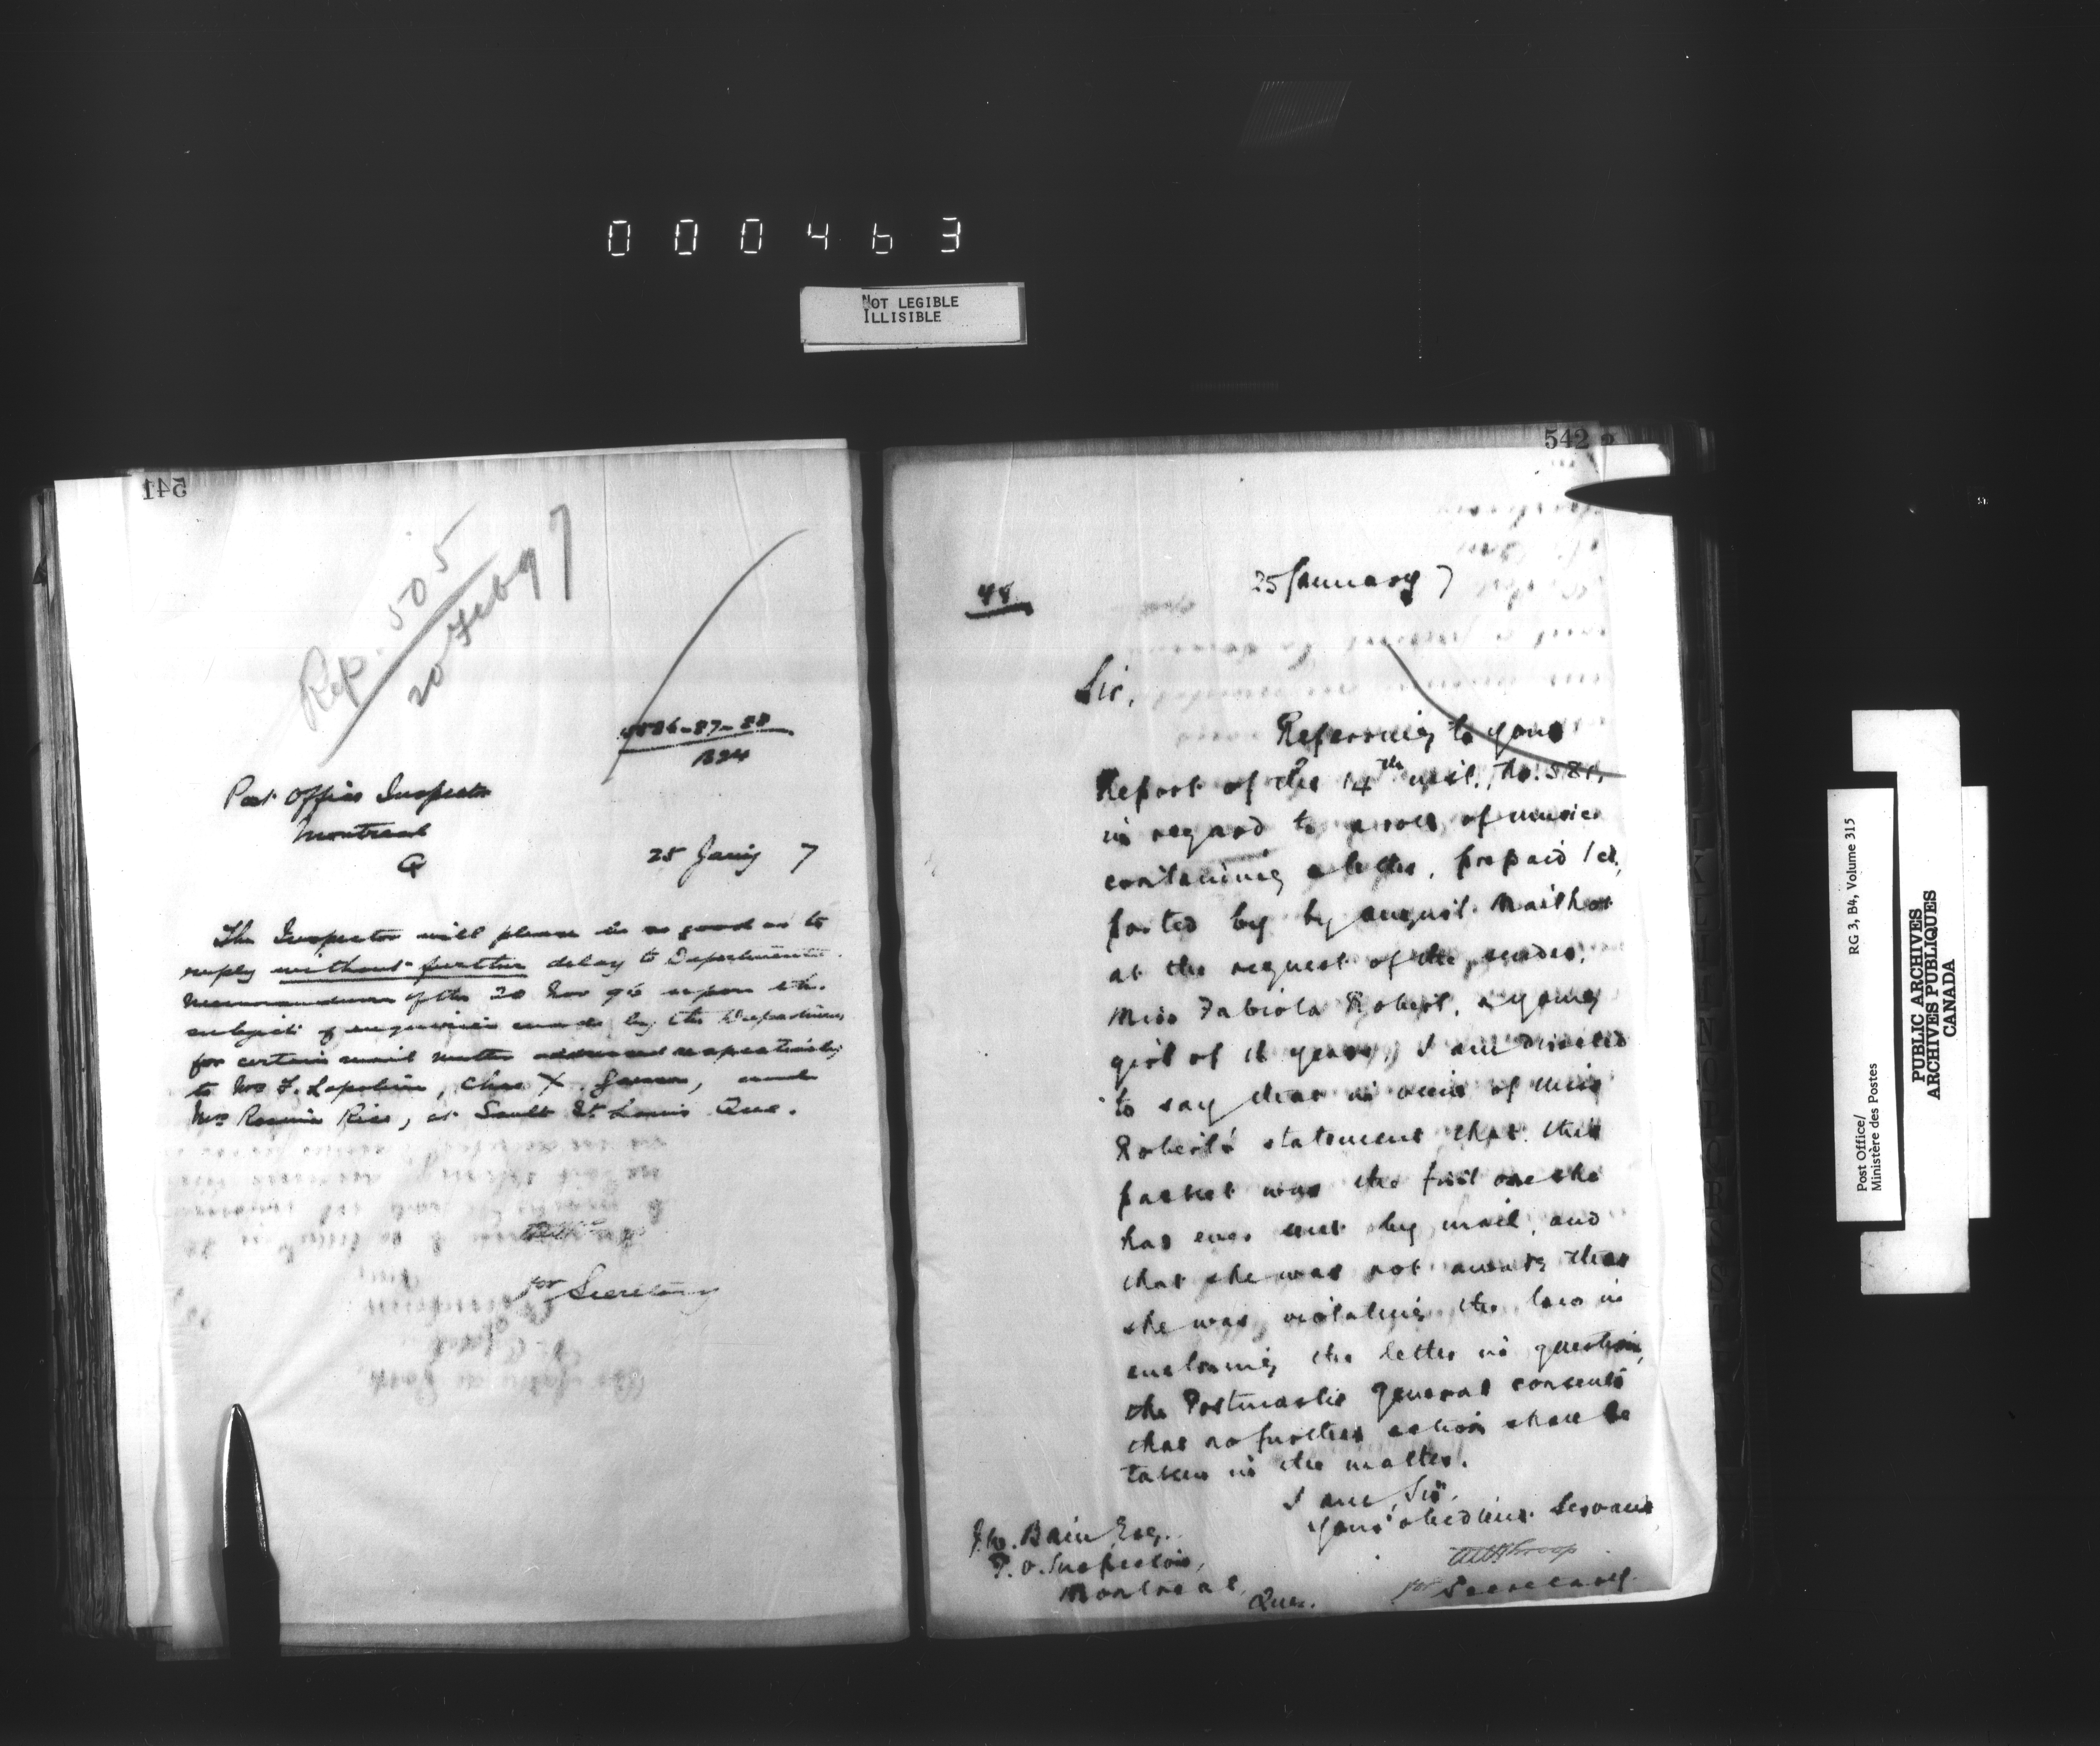 000463
NOT LEGIBLE
ILLISIBLE
541
Rep. 505
20 Feb 97
86-87-88
B24
Post Office Inspector
Montreal
Q
25 Jany 7
The Inspector will please be so good as to
reply without further delay to Departmental
Memorandum of the 20 Nov 96 upon the
subject of enquiries made by the Department
for certain mail matter addressed respectively
to Mrs F. Lapolice, Chas X. , and
Mrs Rice, at Sault St Louis Que.
for Secretary
542
48
25 January 7
Sir,
Referring to your
Report of the 14th inst., No. 581,
in regard to a roll of music
containing a letter, prepaid 1 ct,
posted by by August Mailhot
at the request of the sender,
Miss Fabiola Robert, a young
girl of years, I am directed
to say that in view of Miss
Robert's statement that this
packet was the first one she
has ever sent by mail, and
that she was not aware that
she was violating the law in
enclosing the letter in question,
the Postmaster General consents
that no further action shall be
taken in the matter.
I am, Sir,
Your obedient Servant
for Secretary
J.W. Bain Esq.
P.O. Inspector,
Montreal,
Que.
Post Office/
Ministère des Postes
RG 3, B4, Volume 315
PUBLIC ARCHIVES
ARCHIVES PUBLIQUES
CANADA